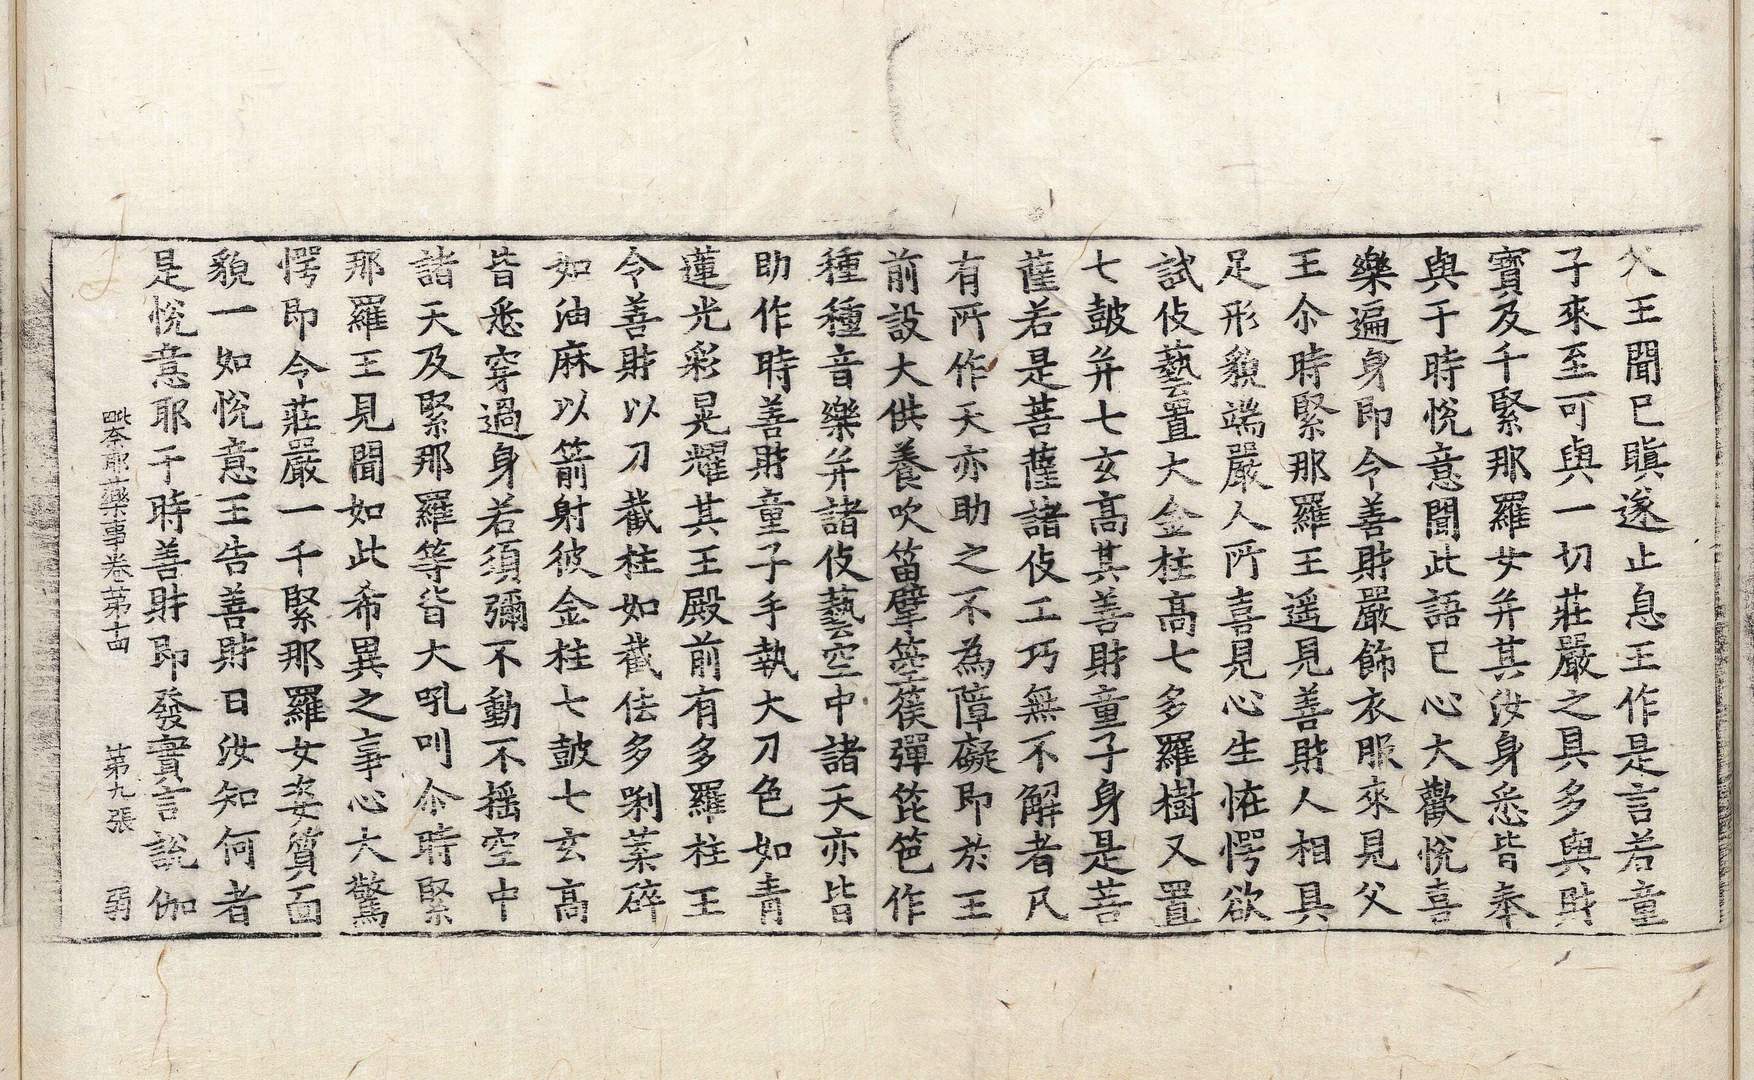 父王聞已瞋遂止息王作是言若童
子來至可與一切莊嚴之具多與財
寶及千緊那羅女并其汝身悉皆奉
與于時悅意聞此語已心大歡悅喜
樂遍身即令善財嚴飾衣服來見父
王尒時緊那羅王遥見善財人相具
足形貌端嚴人所喜見心生恠愕欲
試伎藝置大金柱高七多羅樹又置
七皷并七玄高其善財童子身是菩
薩若是菩薩諸伎工巧無不解者凡
有所作天亦助之不為障礙即於王
前設大供養吹笛擘箜篌彈琵笆作
種種音樂并諸伎藝空中諸天亦皆
助作時善財童子手執大刀色如青
蓮光彩晃耀其王殿前有多羅柱王
令善財以刀截柱如截佉多㓨葉碎
如油麻以箭射彼金柱七皷七玄高
皆悉穿過身若須彌不動不摇空中
諸天及緊那羅等皆大吼叫尒時緊
那羅王見聞如此希異之事心大驚
愕即令莊嚴一千緊那羅女姿質面
貌一如悅意王告善財曰汝知何者
是悅意耶于時善財即發實言說伽
毗奈耶藥事卷第十四 第九張 弱